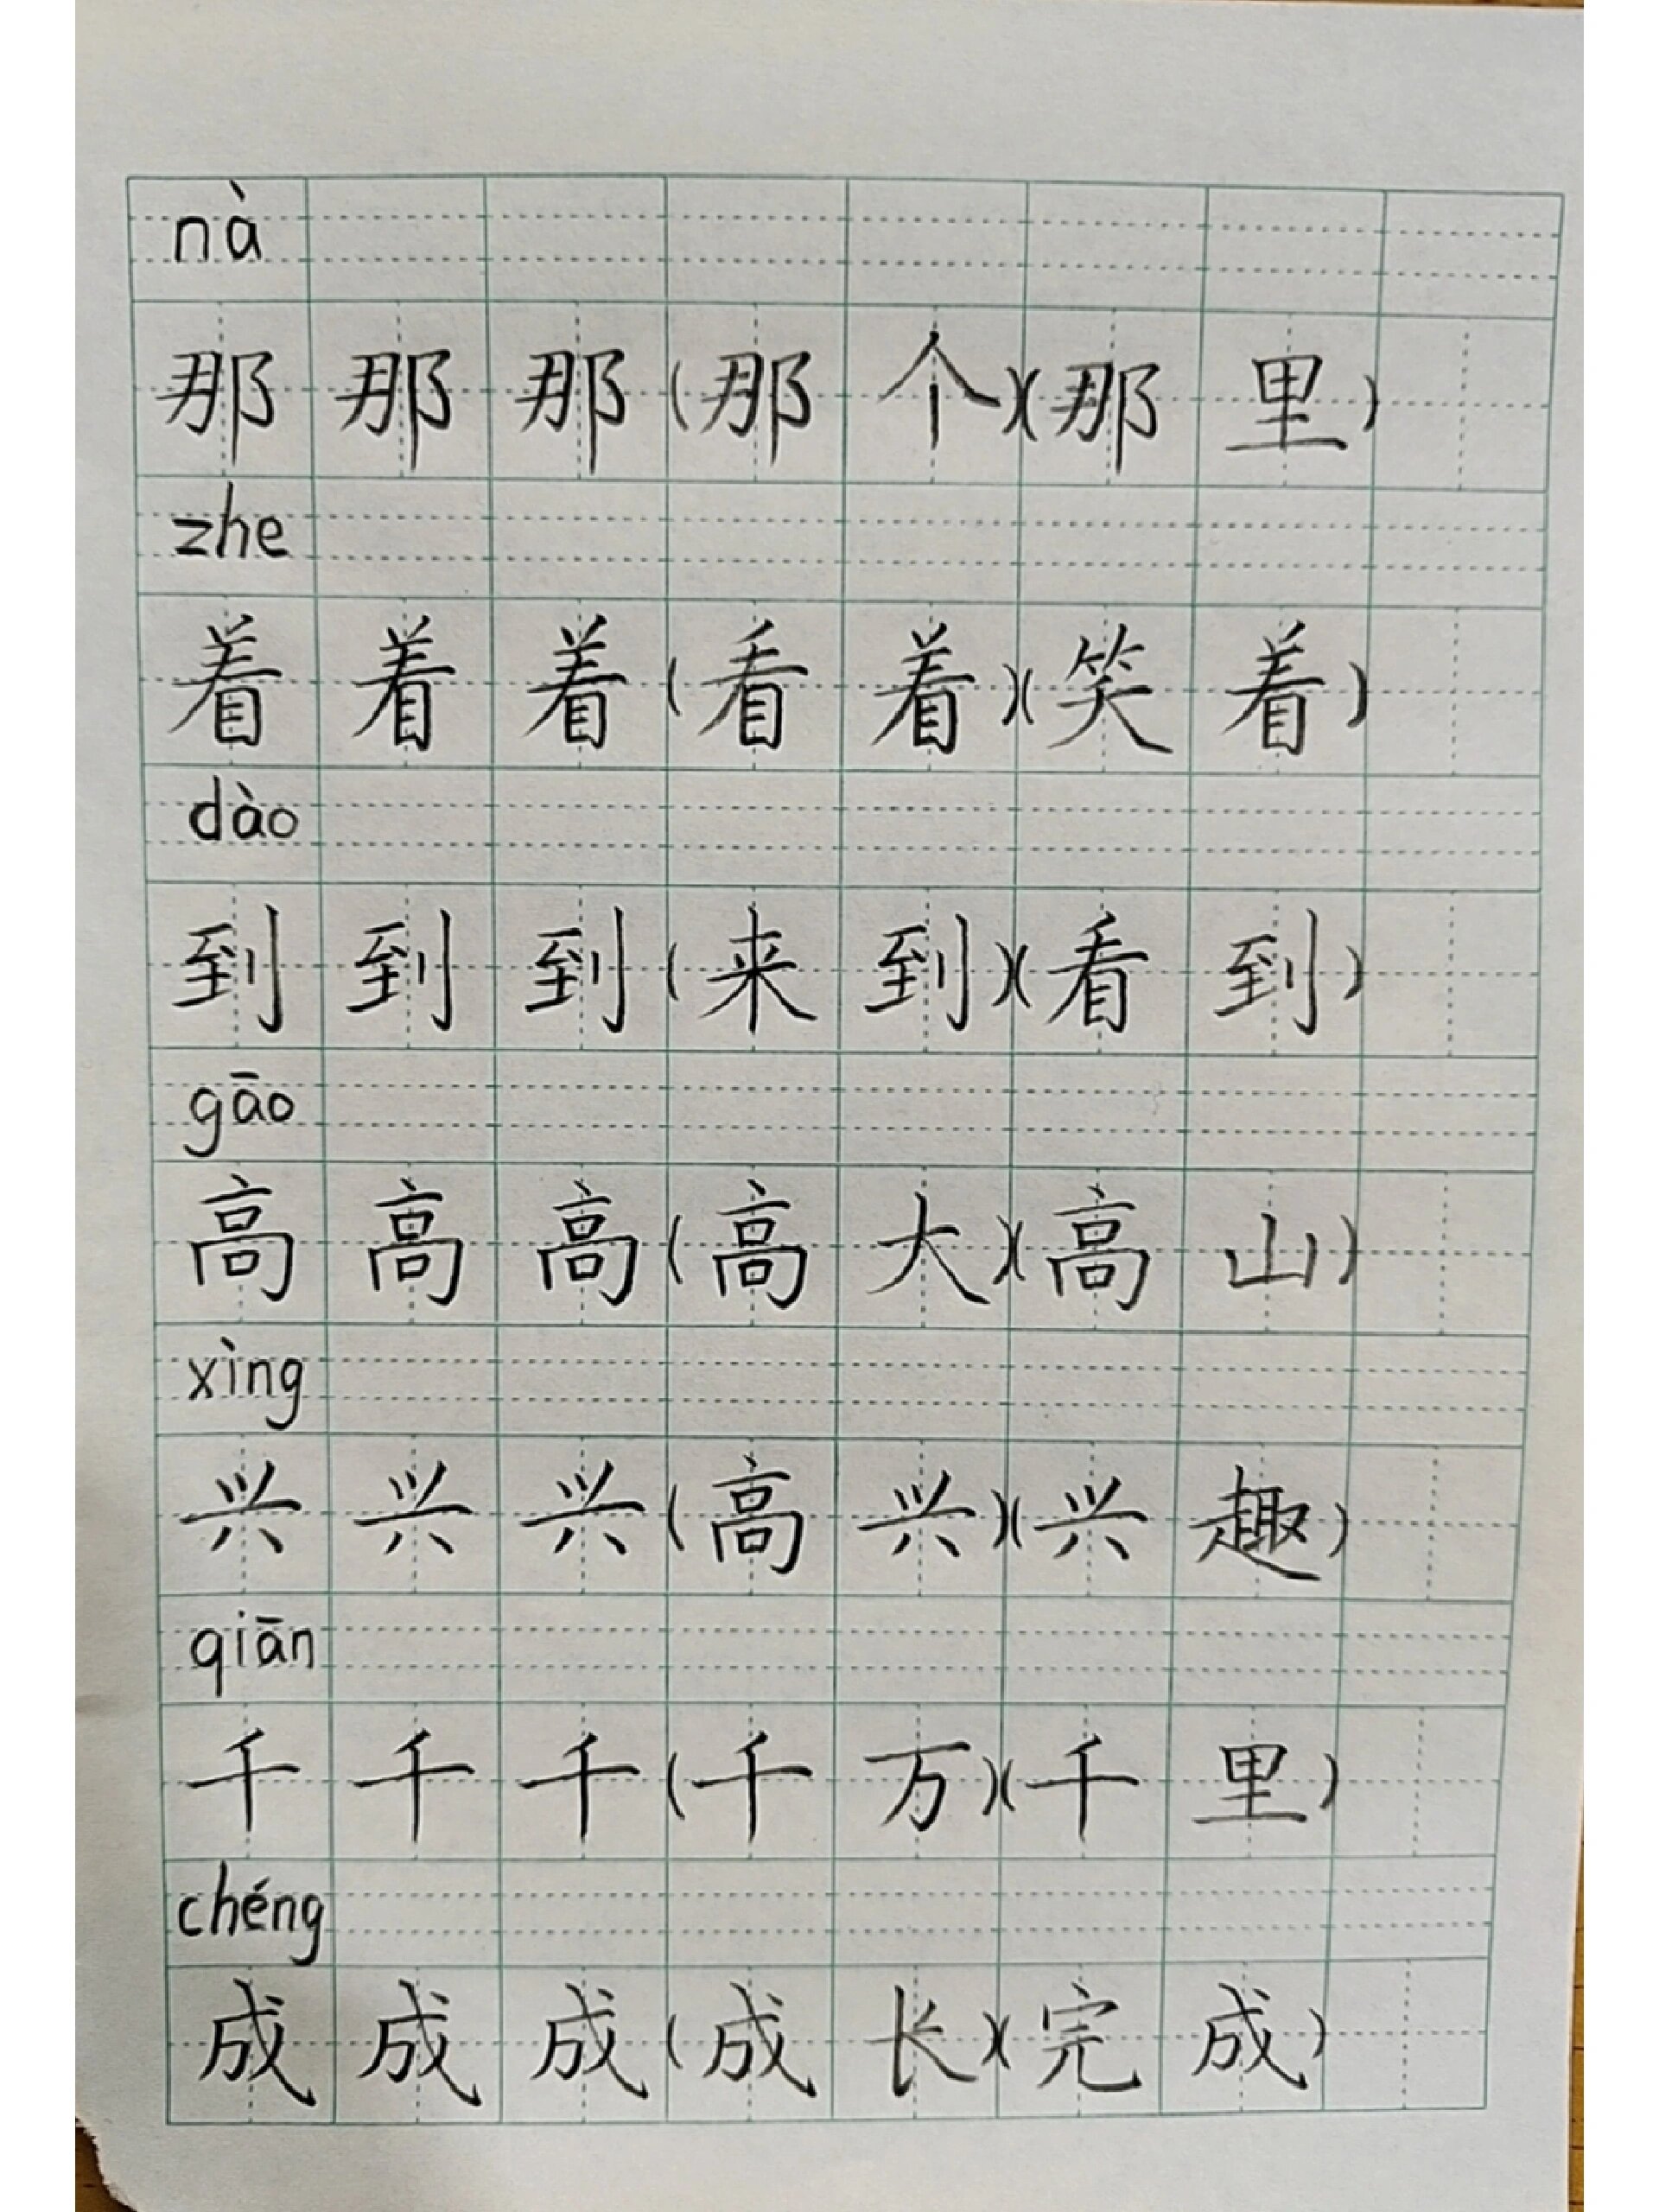 nà
那那那(那个)(那里)
zhe
着着着(看着)(笑着)
dào
到到到(来到)(看到)
gāo
高高高(高大)(高山)
xìng
兴兴兴(高兴)(兴趣)
qiān
千千千(千万)(千里)
chéng
成成成(成长)(完成)